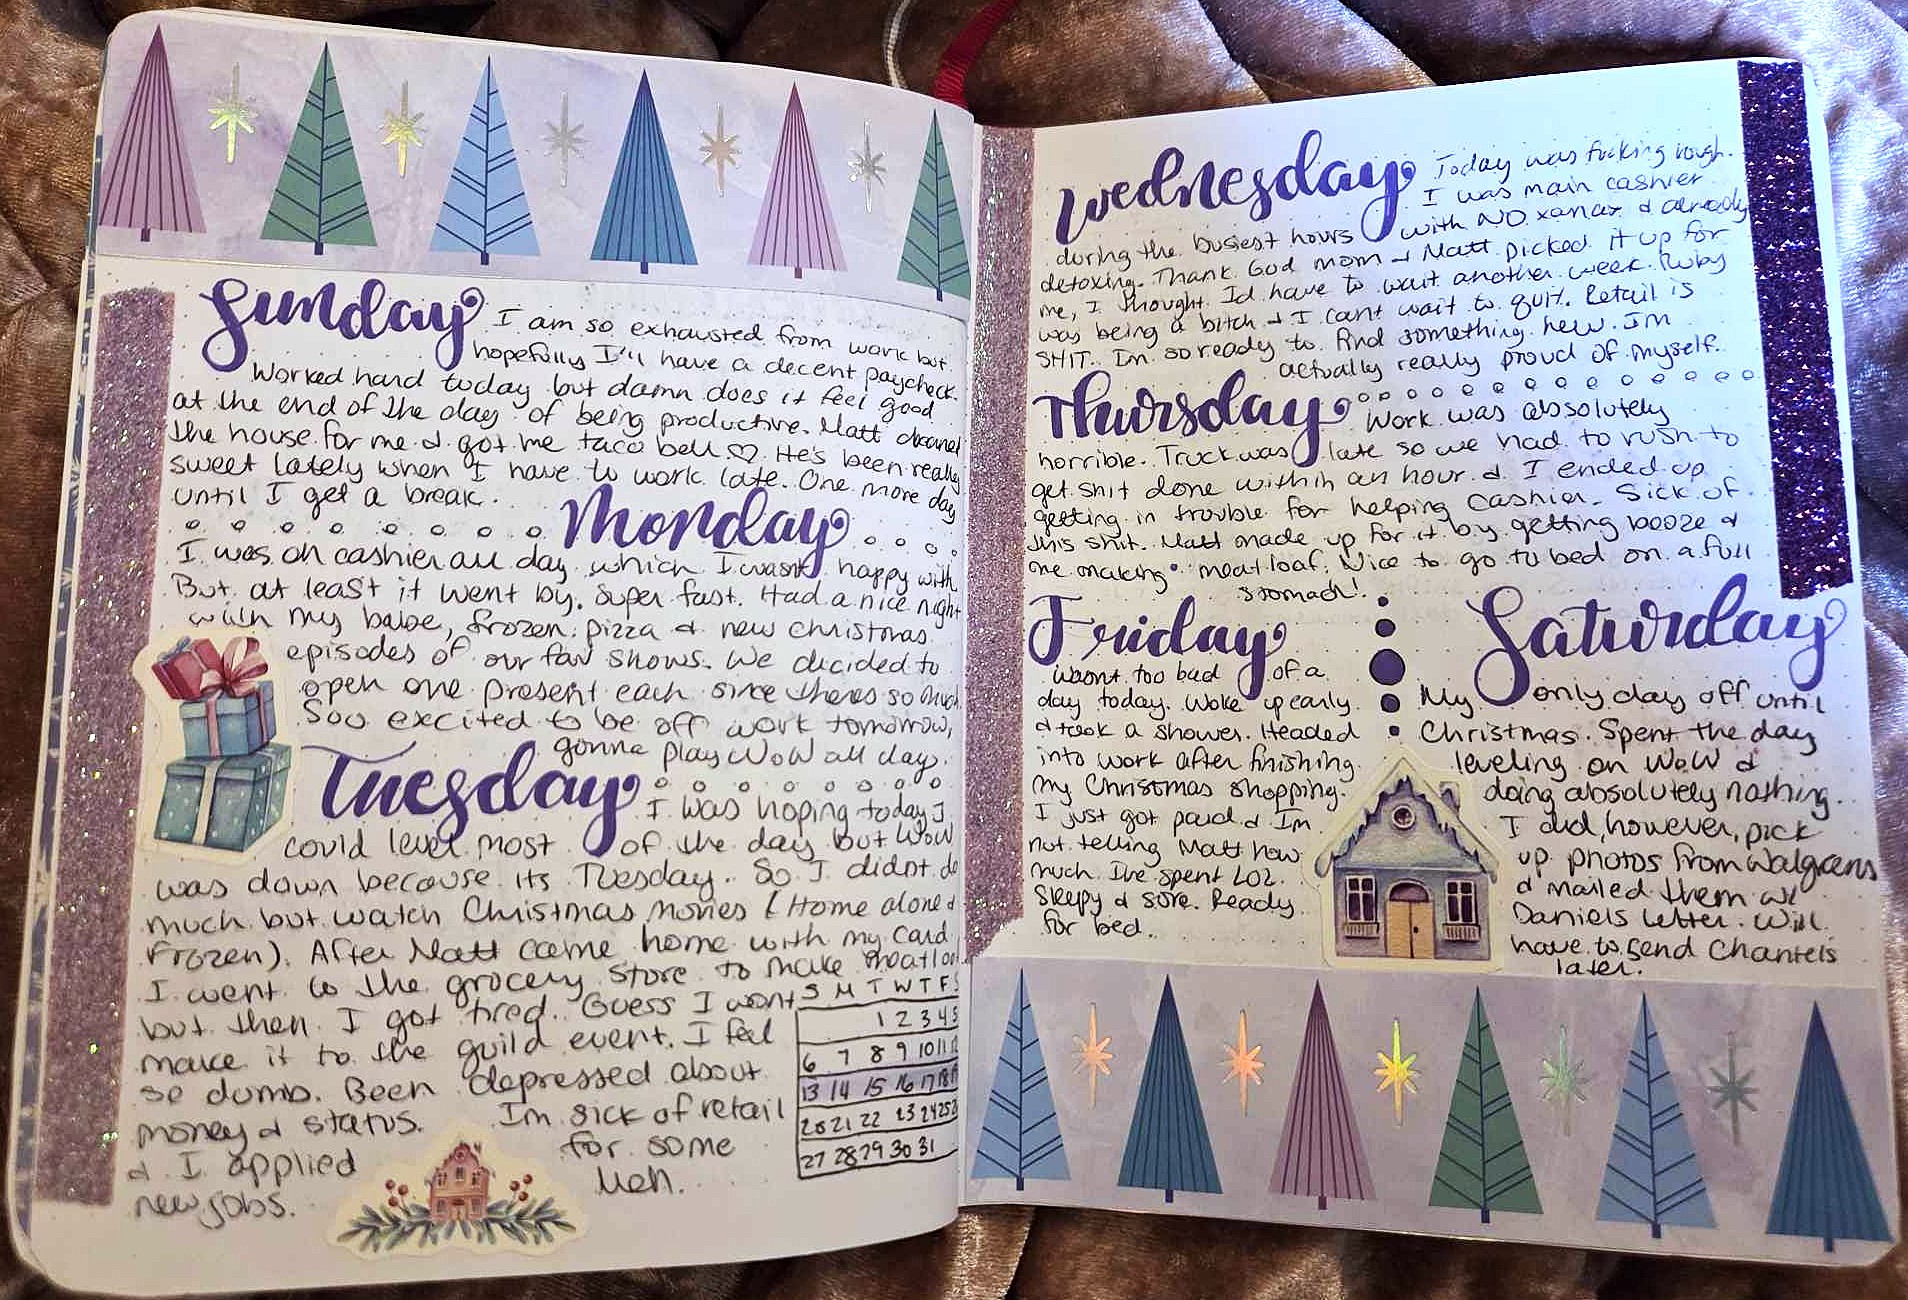 Sunday I am so exhausted from work but
hopefully I'll have a decent paycheck.
Worked hard today but damn does it feel good
at the end of the day of being productive. Matt cleaned
the house for me & got me taco bell ♡. He's been really
sweet lately when I have to work late. One more day
until I get a break.
Monday
I was on cashier all day which I wasnt happy with
But at least it went by super fast. Had a nice night
with my babe, frozen pizza & new christmas
episodes of our fav shows. We decided to
open one present each since theres so much.
Soo excited to be off work tomorrow,
gonna play WoW all day.
Tuesday I was hoping today I
could level most of the day but WoW
was down because its Tuesday. So I didnt do
much but watch Christmas movies (Home alone &
Frozen). After Matt came home with my card
I went to the grocery store to make meatloaf
but then I got tired. Guess I wont
make it to the guild event. I feel
so dumb. Been depressed about
money & status. Im sick of retail
& I applied for some
new jobs. Meh.
S M T W T F S
1 2 3 4 5
6 7 8 9 10 11 12
13 14 15 16 17 18 19
20 21 22 23 24 25 26
27 28 29 30 31
Wednesday Today was fucking rough.
I was main cashier
during the busiest hours with NO xanax & already
detoxing. Thank God mom & Matt picked it up for
me, I thought Id have to wait another week. Ruby
was being a bitch & I cant wait to quit. Retail is
SHIT. Im so ready to find something new. Im
actually really proud of myself.
Thursday Work was absolutely
horrible. Truck was late so we had to rush to
get shit done within an hour & I ended up
getting in trouble for helping cashier. Sick of
this shit. Matt made up for it by getting booze &
me making meatloaf. Nice to go to bed on a full
stomach!
Friday
wasnt too bad of a
day today. Woke up early
& took a shower. Headed
into work after finishing
my Christmas shopping.
I just got paid & Im
not telling Matt how
much Ive spent LOL.
Sleepy & sore. Ready
for bed.
Saturday
My only day off until
Christmas. Spent the day
leveling on WoW &
doing absolutely nothing.
I did, however, pick
up photos from Walgreens
& mailed them w/
Daniels letter. Will
have to send Chantels
later.